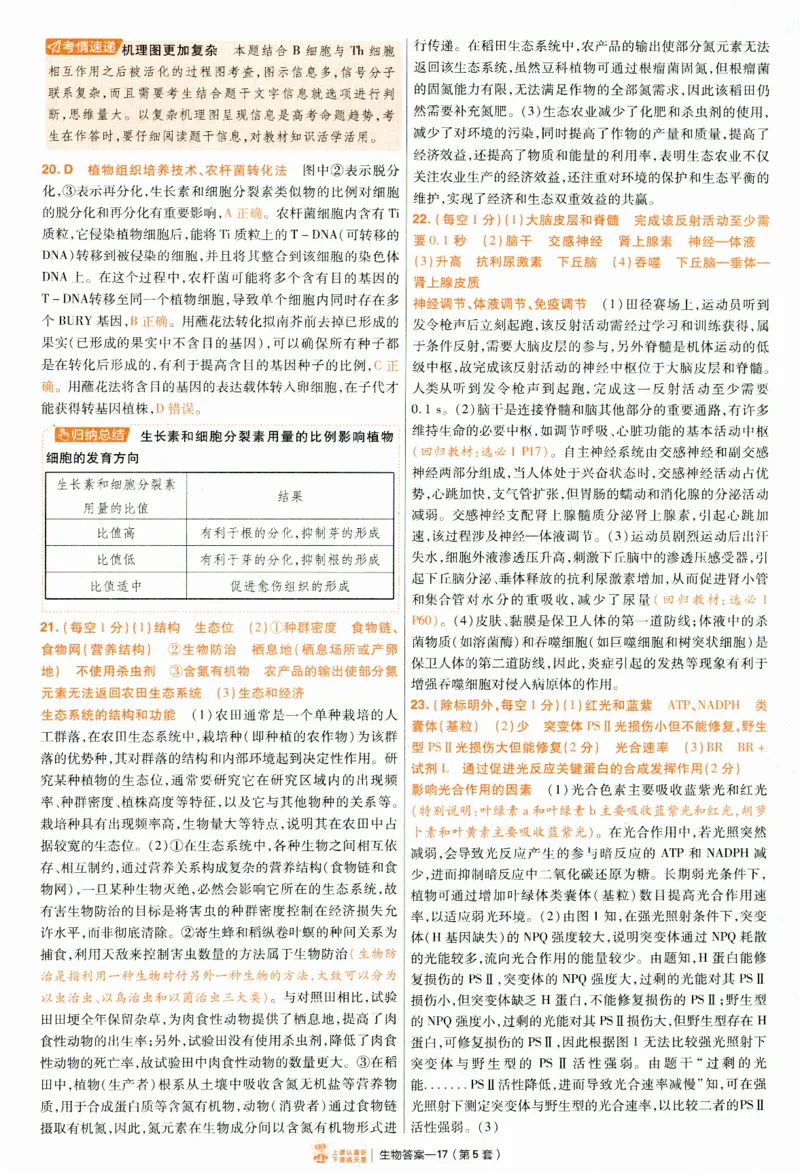 考情速递 机理图更加复杂 本题结合 B 细胞与 Th 细胞
相互作用之后被活化的过程图考查,图示信息多,信号分子
联系复杂,而且需要考生结合题干文字信息就选项进行判
断,思维量大。以复杂机理图呈现信息是高考命题趋势,考
生在作答时,要仔细阅读题干信息,对教材知识活学活用。
20. D 植物组织培养技术、农杆菌转化法 图中②表示脱分
化,③表示再分化,生长素和细胞分裂素类似物的比例对细胞
的脱分化和再分化有重要影响,A 正确。农杆菌细胞内含有 Ti
质粒,它侵染植物细胞后,能将 Ti 质粒上的 T－DNA(可转移的
DNA)转移到被侵染的细胞,并且将其整合到该细胞的染色体
DNA 上。在这个过程中,农杆菌可能将多个含有目的基因的
T－DNA转移至同一个植物细胞,导致单个细胞内同时存在多
个 BURY 基因,B 正确。用蘸花法转化拟南芥前去掉已形成的
果实(已形成的果实中不含目的基因),可以确保所有种子都
是在转化后形成的,有利于提高含目的基因种子的比例,C 正
确。用蘸花法将含目的基因的表达载体转入卵细胞,在子代才
能获得转基因植株,D 错误。
归纳总结 生长素和细胞分裂素用量的比例影响植物
细胞的发育方向
生长素和细胞分裂素
用量的比值
结果
比值高 有利于根的分化,抑制芽的形成
比值低 有利于芽的分化,抑制根的形成
比值适中 促进愈伤组织的形成
21. (每空 1 分)(1)结构 生态位 (2)①种群密度 食物链、
食物网(营养结构) ②生物防治 栖息地(栖息场所或产卵
地) 不使用杀虫剂 ③含氮有机物 农产品的输出使部分氮
元素无法返回农田生态系统 (3)生态和经济
生态系统的结构和功能 (1)农田通常是一个单种栽培的人
工群落,在农田生态系统中,栽培种(即种植的农作物)为该群
落的优势种,其对群落的结构和内部环境起到决定性作用。研
究某种植物的生态位,通常要研究它在研究区域内的出现频
率、种群密度、植株高度等特征,以及它与其他物种的关系等。
栽培种具有出现频率高,生物量大等特点,说明其在农田中占
据较宽的生态位。(2)①在生态系统中,各种生物之间相互依
存、相互制约,通过营养关系构成复杂的营养结构(食物链和食
物网),一旦某种生物灭绝,必然会影响它所在的生态系统,故
有害生物防治的目标是将害虫的种群密度控制在经济损失允
许水平,而非彻底清除。②寄生蜂和稻纵卷叶螟的种间关系为
捕食,利用天敌来控制害虫数量的方法属于生物防治(生物防
治是指利用一种生物对付另外一种生物的方法,大致可以分为
以虫治虫、以鸟治虫和以菌治虫三大类)。与对照田相比,试验
田田埂全年保留杂草,为肉食性动物提供了栖息地,提高了肉
食性动物的出生率;另外,试验田没有使用杀虫剂,降低了肉食
性动物的死亡率,故试验田中肉食性动物的数量更大。③在稻
田中,植物(生产者)根系从土壤中吸收含氮无机盐等营养物
质,用于合成蛋白质等含氮有机物,动物(消费者)通过食物链
摄取有机氮,因此,氮元素在生物成分间以含氮有机物形式进
行传递。在稻田生态系统中,农产品的输出使部分氮元素无法
返回该生态系统,虽然豆科植物可通过根瘤菌固氮,但根瘤菌
的固氮能力有限,无法满足作物的全部氮需求,因此该稻田仍
然需要补充氮肥。(3)生态农业减少了化肥和杀虫剂的使用,
减少了对环境的污染,同时提高了作物的产量和质量,提高了
经济效益,还提高了物质和能量的利用率,表明生态农业不仅
关注农业生产的经济效益,还注重对环境的保护和生态平衡的
维护,实现了经济和生态双重效益的共赢。
22. (每空 1 分)(1)大脑皮层和脊髓 完成该反射活动至少需
要 0.1 秒 (2)脑干 交感神经 肾上腺素 神经—体液
(3)升高 抗利尿激素 下丘脑 (4)吞噬 下丘脑—垂体—
肾上腺皮质
神经调节、体液调节、免疫调节 (1)田径赛场上,运动员听到
发令枪声后立刻起跑,该反射活动需经过学习和训练获得,属
于条件反射,需要大脑皮层的参与,另外脊髓是机体运动的低
级中枢,故完成该反射活动的神经中枢位于大脑皮层和脊髓。
人类从听到发令枪声到起跑,完成这一反射活动至少需要
0.1 s。(2)脑干是连接脊髓和脑其他部分的重要通路,有许多
维持生命的必要中枢,如调节呼吸、心脏功能的基本活动中枢
(回归教材:选必 1 P17)。自主神经系统由交感神经和副交感
神经两部分组成,当人体处于兴奋状态时,交感神经活动占优
势,心跳加快,支气管扩张,但胃肠的蠕动和消化腺的分泌活动
减弱。交感神经支配肾上腺髓质分泌肾上腺素,引起心跳加
速,该过程涉及神经—体液调节。(3)运动员剧烈运动后出汗
失水,细胞外液渗透压升高,刺激下丘脑中的渗透压感受器,引
起下丘脑分泌、垂体释放的抗利尿激素增加,从而促进肾小管
和集合管对水分的重吸收,减少了尿量(回归教材:选必 1
P60)。(4)皮肤、黏膜是保卫人体的第一道防线;体液中的杀
菌物质(如溶菌酶)和吞噬细胞(如巨噬细胞和树突状细胞)是
保卫人体的第二道防线,因此,炎症引起的发热等现象有利于
增强吞噬细胞对侵入病原体的作用。
23. (除标明外,每空 1 分)(1)红光和蓝紫 ATP、NADPH 类
囊体(基粒) (2)少 突变体 PSⅡ光损伤小但不能修复,野生
型 PSⅡ光损伤大但能修复(2 分) 光合速率 (3)BR BR＋
试剂 L 通过促进光反应关键蛋白的合成发挥作用(2 分)
影响光合作用的因素 (1)光合色素主要吸收蓝紫光和红光
(特别说明:叶绿素 a 和叶绿素 b 主要吸收蓝紫光和红光,胡萝
卜素和叶黄素主要吸收蓝紫光)。在光合作用中,若光照突然
减弱,会导致光反应产生的参与暗反应的 ATP 和 NADPH 减
少,进而抑制暗反应中二氧化碳还原为糖。长期弱光条件下,
植物可通过增加叶绿体类囊体(基粒)数目提高光合作用速
率,以适应弱光环境。(2)由图 1 知,在强光照射条件下,突变
体(H 基因缺失)的 NPQ 强度较大,说明突变体通过 NPQ 耗散
的光能较多,流向光合作用的能量较少。由题知,H 蛋白能修
复损伤的 PSⅡ,突变体的 NPQ 强度大,过剩的光能对其 PSⅡ
损伤小,但突变体缺乏 H 蛋白,不能修复损伤的 PSⅡ;野生型
的 NPQ 强度小,过剩的光能对其 PSⅡ损伤大,但野生型存在 H
蛋白,可修复损伤的 PSⅡ,因此根据图 1 无法比较强光照射下
突变体与野生型的 PSⅡ活性强弱。由题干“过剩的光
能.......PSⅡ活性降低,进而导致光合速率减慢”知,可在强
光照射下测定突变体与野生型的光合速率,以比较二者的PSⅡ
活性强弱。(3)
上课认真听
下课练天星
生物答案—17(第 5 套)